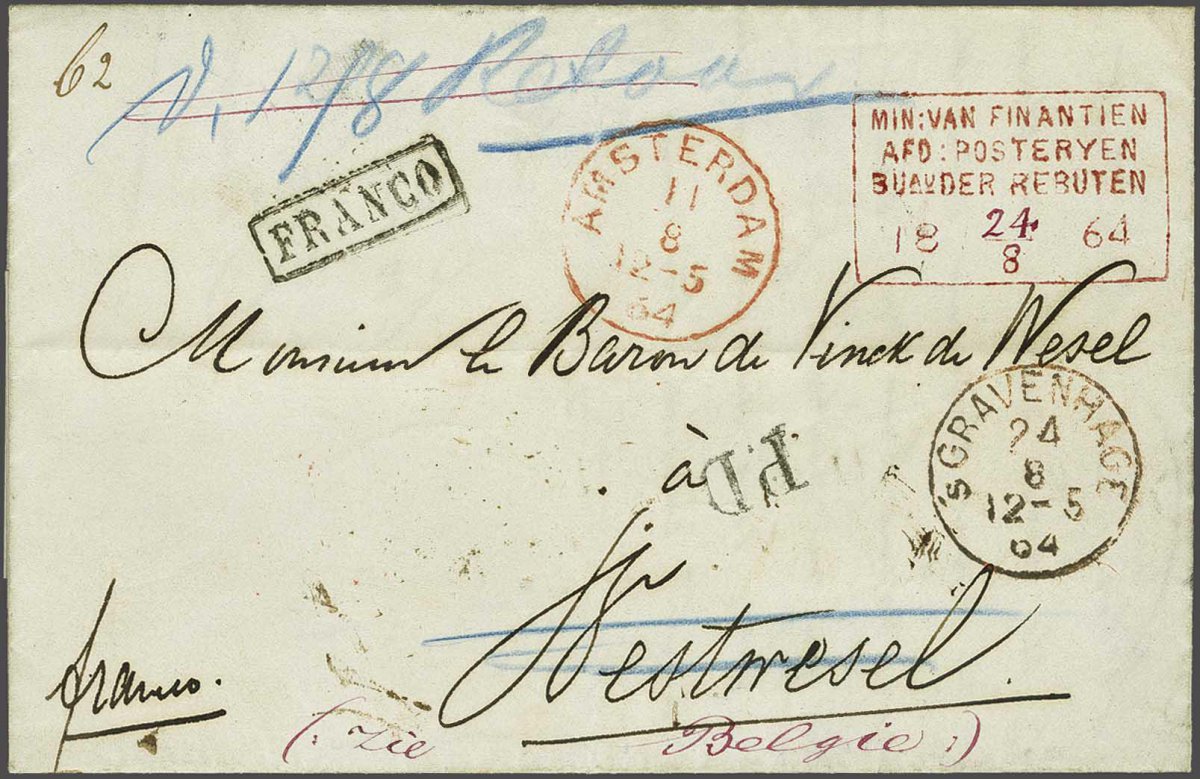 62
12/8
FRANCO
AMSTERDAM
11
8
12-5
64
MIN: VAN FINANTIEN
AFD: POSTERYEN
BUAU DER REBUTEN
18 24/8 64
Monsieur le Baron de Vinck de Wesel
à
P.D
'sGRAVENHAGE
24
8
12-5
64
Westwesel.
franco.
(: Zie Belgie :)